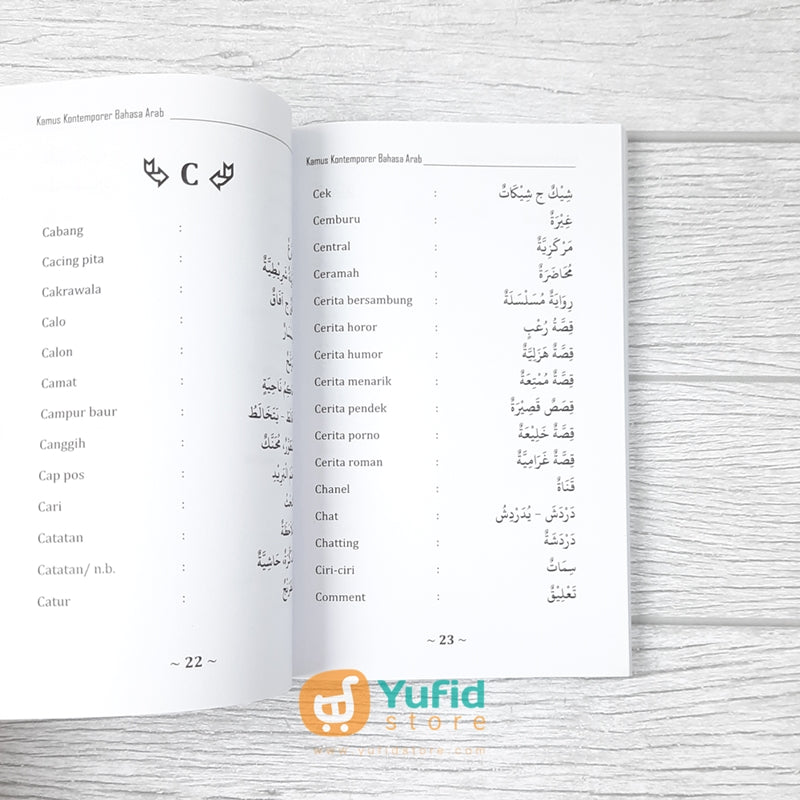 Kamus Kontemporer Bahasa Arab
C
Cabang :
Cacing pita :
Cakrawala : آفَاقٌ
Calo :
Calon :
Camat : نَاحِيَةٍ
Campur baur : – يَتَخَالَطُ
Canggih : مُحَنَّكٌ
Cap pos :
Cari :
Catatan :
Catatan/ n.b. : حَاشِيَّةٌ
Catur :
~ 22 ~
Kamus Kontemporer Bahasa Arab
Cek : شِيْكٌ ج شِيْكَاتٌ
Cemburu : غِيْرَةٌ
Central : مَرْكَزِيَّةٌ
Ceramah : مُحَاضَرَةٌ
Cerita bersambung : رِوَايَةٌ مُسَلْسَلَةٌ
Cerita horor : قِصَّةُ رُعْبٍ
Cerita humor : قِصَّةٌ هَزَلِيَّةٌ
Cerita menarik : قِصَّةٌ مُمْتِعَةٌ
Cerita pendek : قِصَصٌ قَصِيْرَةٌ
Cerita porno : قِصَّةٌ خَلِيْعَةٌ
Cerita roman : قِصَّةٌ غَرَامِيَّةٌ
Chanel : قَنَاةٌ
Chat : دَرْدَشَ – يُدَرْدِشُ
Chatting : دَرْدَشَةٌ
Ciri-ciri : سِمَاتٌ
Comment : تَعْلِيْقٌ
~ 23 ~
Yufid
store
www.yufidstore.com